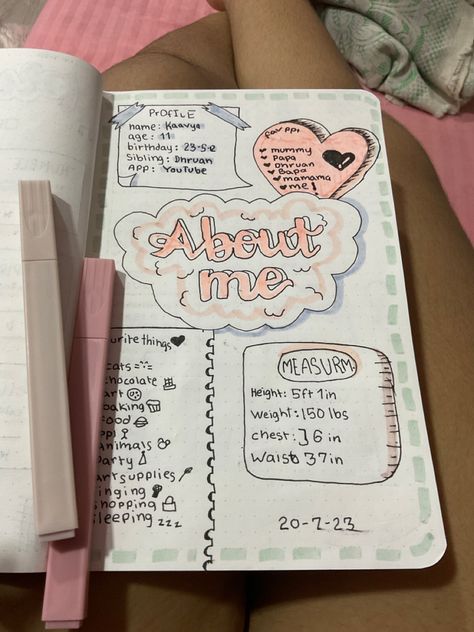 PROFILE
name: Kaavya
age: 11
birthday:
Sibling: Dhruan
APP: YouTube
fav ppl
mummy
Papa
Dhruan
Bapa
mamama
me!
About
me
urite things
cats
chocolate
art
baking
food
ppl
Animals
Party
art supplies
singing
shopping
sleeping zzz
MEASURM.
Height: 5ft 1in
weight: 150 lbs
chest: 36 in
Waist 37in
20-7-23